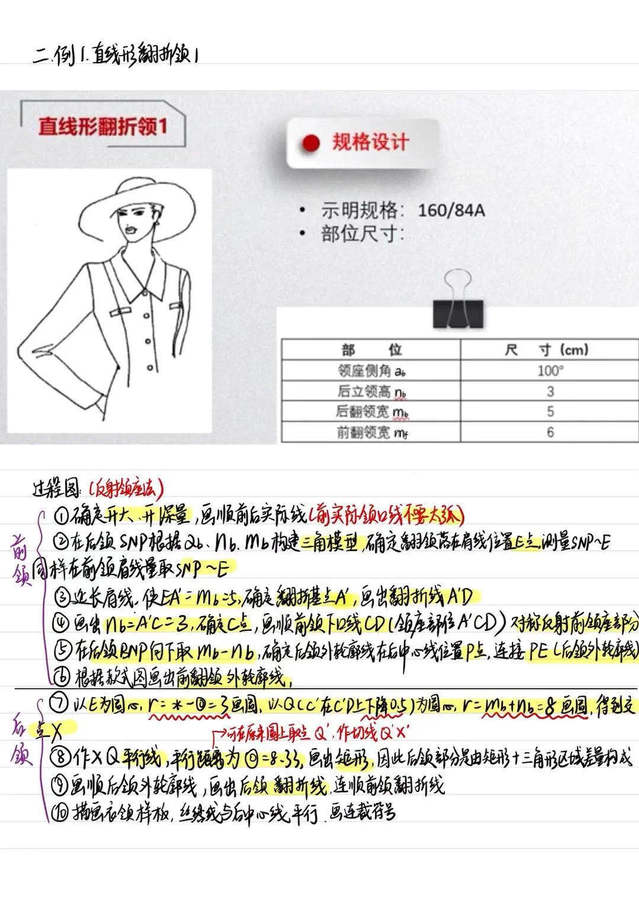 二.例1.直线形翻折领1
直线形翻折领1
规格设计
• 示明规格：160/84A
• 部位尺寸：
部 位 尺 寸（cm）
领座侧角 αb 100°
后立领高 nb 3
后翻领宽 mb 5
前翻领宽 mf 6
过程图：(反射领座法)
前领
①确定开大、开深量，画顺前后实际线(前实际领口线不要太弧)
②在后领SNP根据αb、nb、mb构建三角模型，确定翻领落在肩线位置E点，测量SNP~E
同样在前领肩线量取SNP~E
③延长肩线，使EA'=mb=5，确定翻折基点A'，画出翻折线A'D
④画出nb=A'C=3，确定C点，画顺前领下口线CD(领座部位A'CD) 对称反射前领座部分
⑤在后领BNP向下取mb-nb，确定后领外轮廓线在后中心线位置P点，连接PE(后领外轮廓线)
⑥根据款式图画出前翻领外轮廓线，
后领
⑦以E为圆心，r=*-◎=3画圆，以Q(C'在C'D上下降0.5)为圆心，r=mb+nb=8画圆，得到交
点X
可在后来圆上取点Q'，作切线Q'X'
⑧作XQ平行线，平行距离为◎=8.33，画出矩形，因此后领部分是由矩形+三角形区域差量构成
⑨画顺后领外轮廓线，画出后领翻折线，连顺前领翻折线
⑩描画衣领样板，丝绺线与后中心线平行.画连裁符号